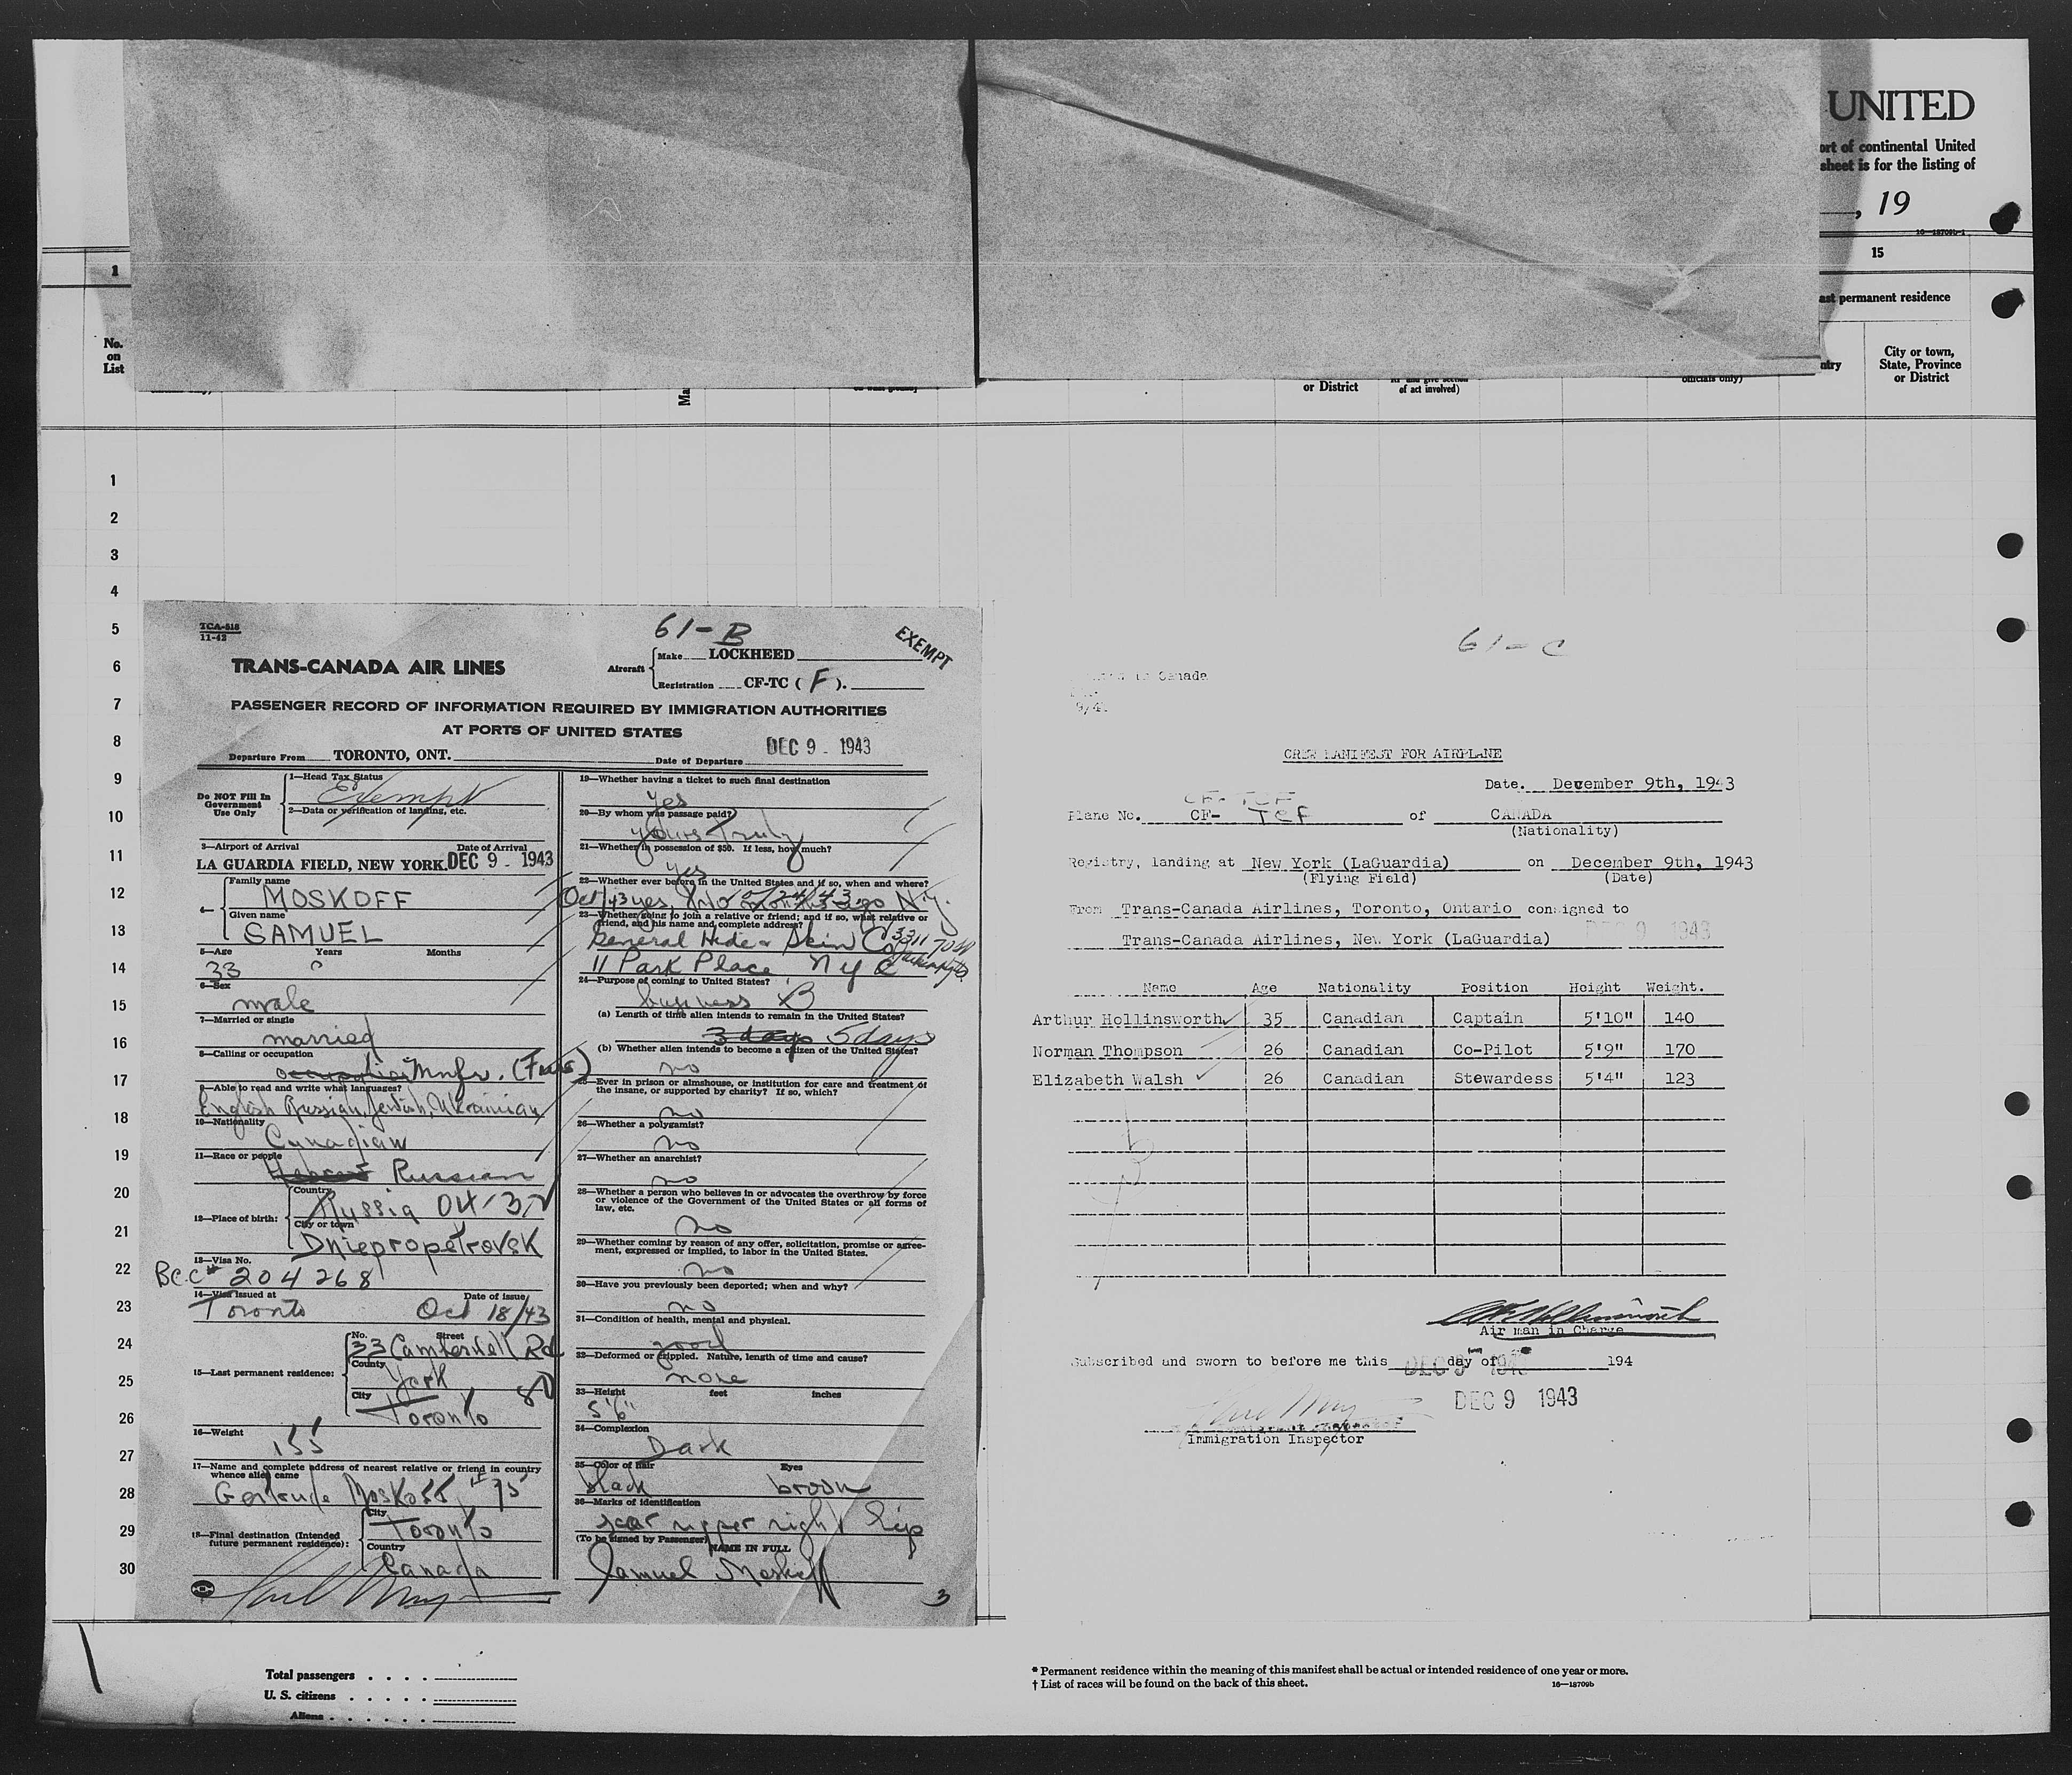 UNITED
ort of continental United
sheet is for the listing of
, 19
16—18709b-1
1
15
ast permanent residence
No.
on
List
ntry
City or town,
State, Province
or District
Ma
or District
of act involved)
officials only)
1
2
3
4
5
6
7
8
9
10
11
12
13
14
15
16
17
18
19
20
21
22
23
24
25
26
27
28
29
30
TCA-518
11-42
61-B
EXEMPT
TRANS-CANADA AIR LINES
Aircraft
Make LOCKHEED
Registration CF-TC ( F ).
PASSENGER RECORD OF INFORMATION REQUIRED BY IMMIGRATION AUTHORITIES
AT PORTS OF UNITED STATES
DEC 9 - 1943
Departure From TORONTO, ONT. Date of Departure
Do NOT Fill In
Government
Use Only
1—Head Tax Status
Exempt
2—Data or verification of landing, etc.
3—Airport of Arrival Date of Arrival
LA GUARDIA FIELD, NEW YORK. DEC 9 - 1943
4—
Family name
MOSKOFF
Given name
SAMUEL
5—Age Years Months
33
6—Sex
male
7—Married or single
married
8—Calling or occupation
Mnfr. (Furs)
9—Able to read and write what languages?
English Russian, Jewish, Ukrainian
10—Nationality
Canadian
11—Race or people
Hebrew Russian
12—Place of birth:
Country
Russia
City or town
Dniepropetrovsk
13—Visa No.
BCC# 204268
14—Visa Issued at Date of issue
Toronto Oct 18/43
15—Last permanent residence:
No. Street
33 Camberwell Rd
County
York
City
Toronto
16—Weight
155
17—Name and complete address of nearest relative or friend in country
whence alien came
Gertrude Moskoff #15
18—Final destination (Intended
future permanent residence):
City
Toronto
Country
Canada
19—Whether having a ticket to such final destination
yes
20—By whom was passage paid?
yours truly
21—Whether in possession of $50. If less, how much?
yes
22—Whether ever before in the United States and if so, when and where?
Oct/43 yes, two months ago N.Y.
23—Whether going to join a relative or friend; and if so, what relative or
friend, and his name and complete address?
General Hide & Skin Co
11 Park Place N Y C
24—Purpose of coming to United States?
business B
(a) Length of time alien intends to remain in the United States?
3 days 5 days
(b) Whether alien intends to become a citizen of the United States?
no
25—Ever in prison or almshouse, or institution for care and treatment of
the insane, or supported by charity? If so, which?
no
26—Whether a polygamist?
no
27—Whether an anarchist?
no
28—Whether a person who believes in or advocates the overthrow by force
or violence of the Government of the United States or all forms of
law, etc.
no
29—Whether coming by reason of any offer, solicitation, promise or agree-
ment, expressed or implied, to labor in the United States.
no
30—Have you previously been deported; when and why?
no
31—Condition of health, mental and physical.
good
32—Deformed or crippled. Nature, length of time and cause?
none
33—Height feet inches
5'6"
34—Complexion
Dark
35—Color of Hair Eyes
black brown
36—Marks of identification
scar upper right lip
(To be signed by Passenger) NAME IN FULL
Samuel Moskoff
3
61-C
in Canada
CREW MANIFEST FOR AIRPLANE
Date. December 9th, 1943
CF-TCF
Plane No. CF- TCF of CANADA
(Nationality)
Registry, landing at New York (LaGuardia) on December 9th, 1943
(Flying Field) (Date)
From Trans-Canada Airlines, Toronto, Ontario consigned to
Trans-Canada Airlines, New York (LaGuardia) DEC 9 1943
Name Age Nationality Position Height Weight.
Arthur Hollinsworth 35 Canadian Captain 5'10" 140
Norman Thompson 26 Canadian Co-Pilot 5'9" 170
Elizabeth Walsh 26 Canadian Stewardess 5'4" 123
Air man in Charge
Subscribed and sworn to before me this DEC 9 day of 1943 194
DEC 9 1943
Immigration Inspector
Total passengers
U. S. citizens
Aliens
* Permanent residence within the meaning of this manifest shall be actual or intended residence of one year or more.
† List of races will be found on the back of this sheet. 16—18709b